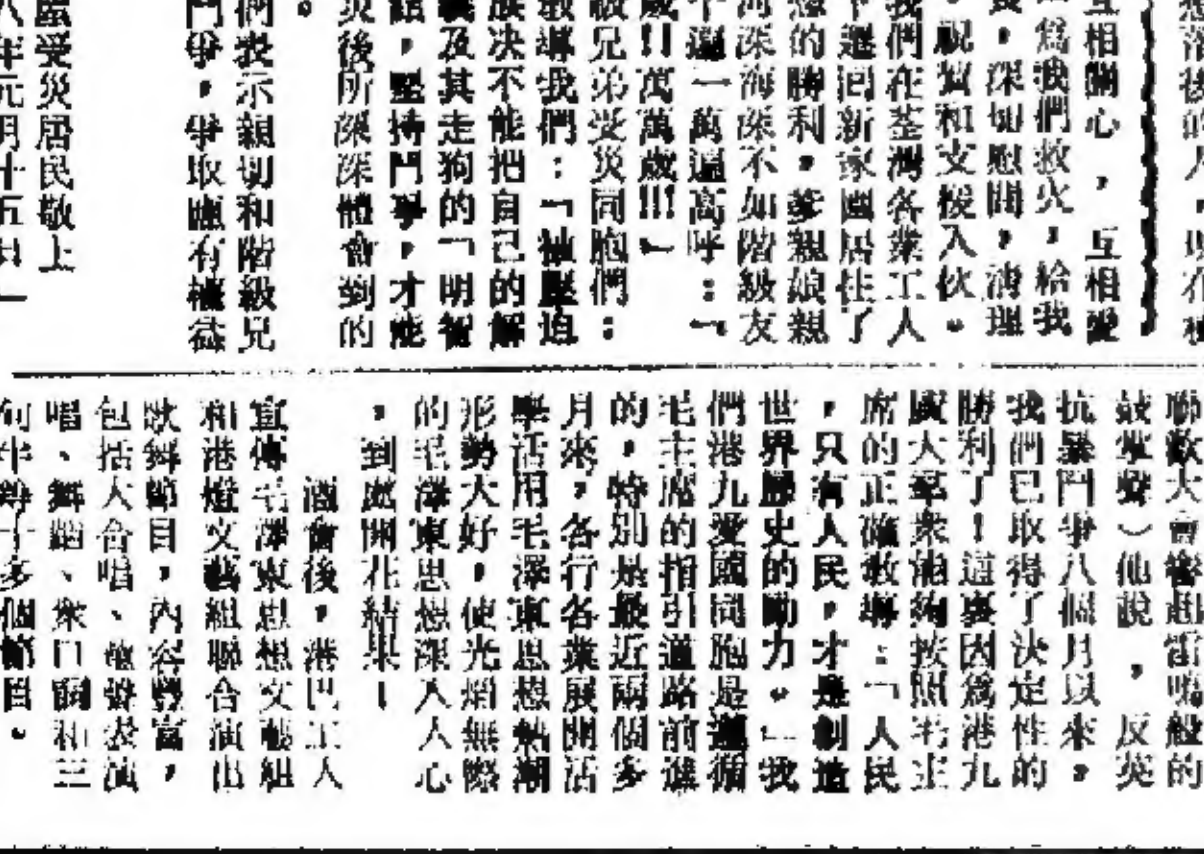 想
後的人,現在
互相關心,互相愛
為我們救火,給我
,深切慰問,清理
,祝賀和支援入伙。
我們在荃灣各業工人
下遷回新家園居住了
的勝利。爹親娘親
河深海深不如階級友
千遍一萬遍高呼:「
歲!!萬萬歲!!!」
級兄弟受災同胞們:
教導我們:「被壓迫
族決不能把自己的解
義及其走狗的「明智
,堅持鬥爭,才能
災後所深深體會到的
。
們表示親切和階級兄
鬥爭,爭取應有權益
屋受災居民敬上
八年元月十五日—
聯歡大會響起雷鳴般的
鼓掌聲)他說,反英
抗暴鬥爭八個月以來,
我們已取得了決定性的
勝利了!這裏因為港九
廣大羣衆能夠按照毛主
席的正確教導:「人民
,只有人民,才是創造
世界歷史的動力。」我
們港九愛國同胞是遵循
毛主席的指引道路前進
的,特別是最近兩個多
月來,各行各業展開活
學活用毛澤東思想熱潮
形勢大好,使光焰無際
的毛澤東思想深入人心
,到處開花結果!
酒會後,港門工人
宣傳毛澤東思想文藝組
和港燈文藝組聯合演出
歌舞節目,內容豐富,
包括大合唱、 聲表演
唱、舞蹈、衆口 和三
句半等十多個節目。